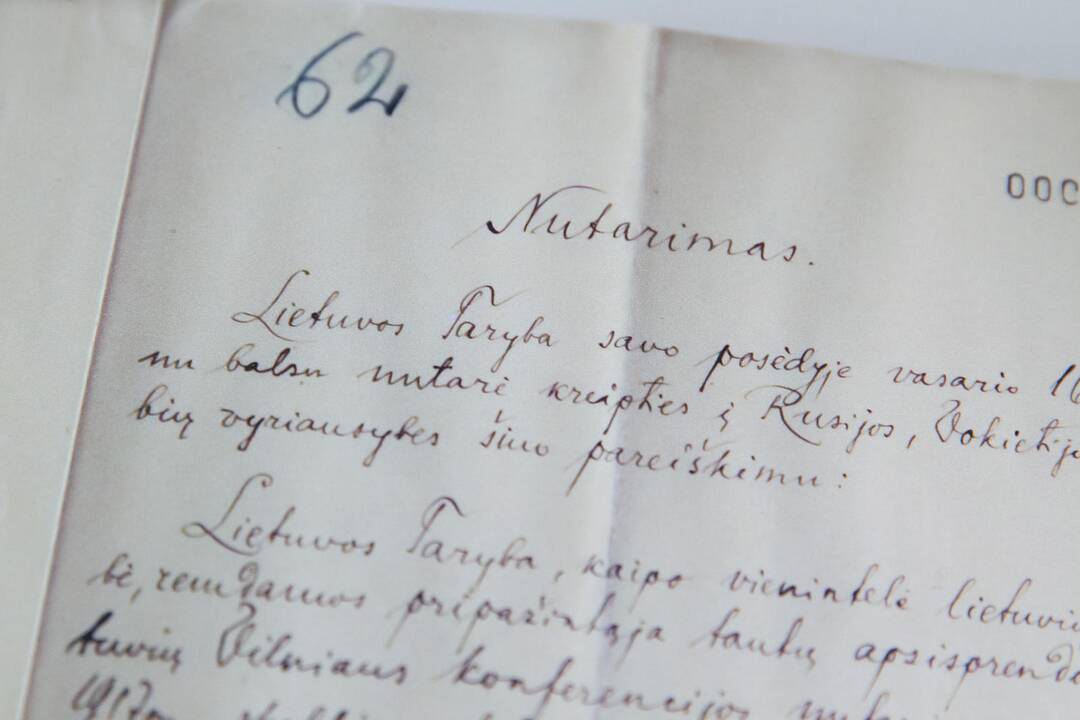 62
OOC
Nutarimas.
Lietuvos Taryba savo posėdyje vasario 16
nu balsu nutarė kreipties į Rusijos, Vokietij
bių vyriausybes šiuo pareiškimu:
Lietuvos Taryba, kaipo vienintelė lietuvi
bė, remdamos pripažintąja tautų apsisprend
tuvių Vilniaus konferencijos
1917